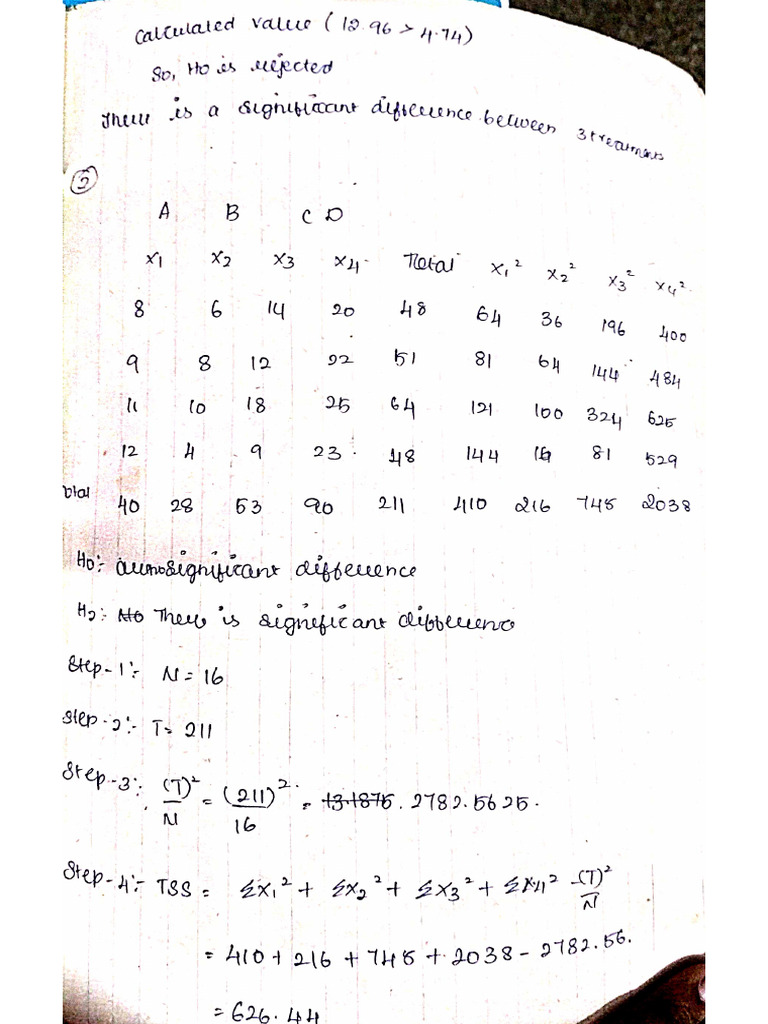 Calculated value (12.96 > 4.74)
So, Ho is rejected
There is a significant difference between 3 treatments
5
A B C D
x1 x2 x3 x4 Total x1² x2² x3² x4²
8 6 14 20 48 64 36 196 400
9 8 12 22 51 81 64 144 484
11 10 18 25 64 121 100 324 625
12 4 9 23 48 144 16 81 529
otal 40 28 53 90 211 410 216 745 2038
Ho:- significant difference
H2:- No There is significant difference
Step-1:- N = 16
Step-2:- T = 211
Step-3:- (T)²/N = (211)²/16 = 13.1875. 2782.5625.
Step-4:- TSS = ΣX1² + ΣX2² + ΣX3² + ΣX4² - (T)²/N
= 410 + 216 + 745 + 2038 - 2782.56.
= 626.44